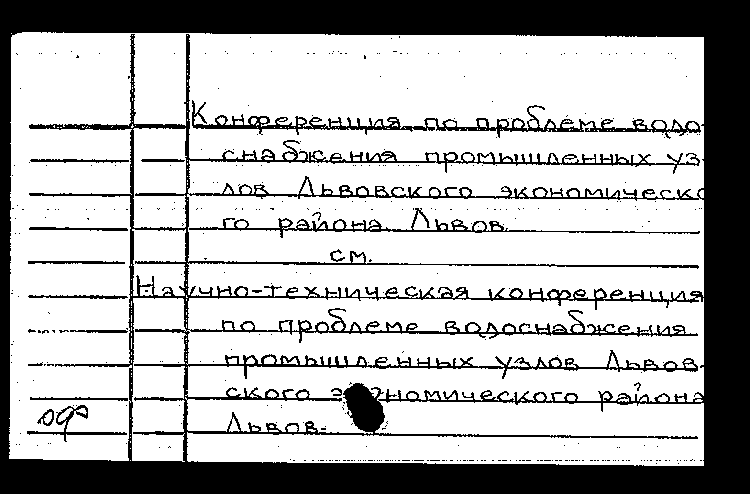 Конференция по проблеме водо-
снабжения промышленных уз-
лов Львовского экономическо
го района. Львов.
см.
Научно-техническая конференция
по проблеме водоснабжения
промышленных узлов Львов-
ского экономического района
Львов.